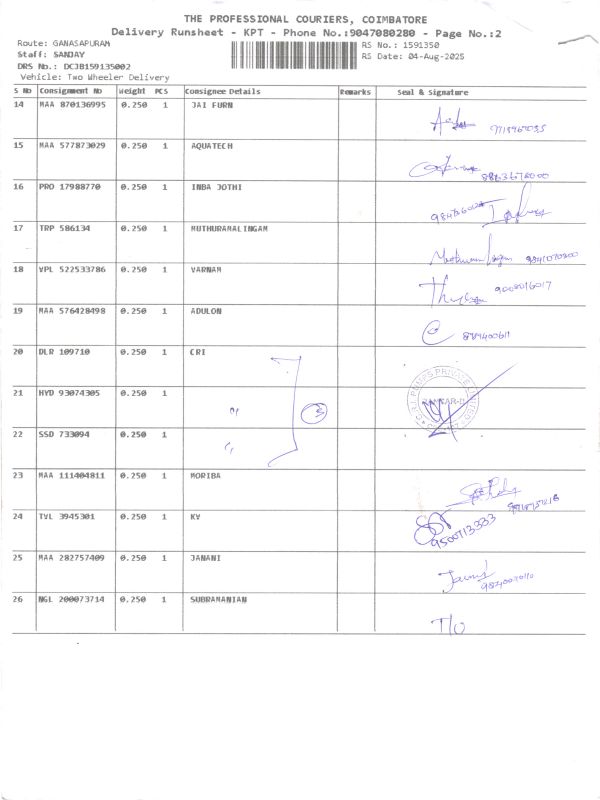 THE PROFESSIONAL COURIERS, COIMBATORE
Delivery Runsheet - KPT - Phone No.:9047080280 - Page No.:2
Route: GANASAPURAM
RS No.: 1591350
Staff: SANJAY
RS Date: 04-Aug-2025
DRS No.: DCJB159135002
Vehicle: Two Wheeler Delivery
S No Consignment No Weight PCS Consignee Details Remarks Seal & Signature
14 MAA 870136995 0.250 1 JAI FURN
15 MAA 577873029 0.250 1 AQUATECH
16 PRO 17988770 0.250 1 INBA JOTHI
17 TRP 586134 0.250 1 MUTHURAMALINGAM
18 VPL 522533786 0.250 1 VARNAM
19 MAA 576428498 0.250 1 ADULON
20 DLR 109710 0.250 1 CRI
21 HYD 93074305 0.250 1 " 3
22 SSD 733094 0.250 1 "
23 MAA 111404811 0.250 1 MORIBA
24 TVL 3945301 0.250 1 KV 9500713333
25 MAA 282757409 0.250 1 JANANI
26 NGL 200073714 0.250 1 SUBRAMANIAN T/O